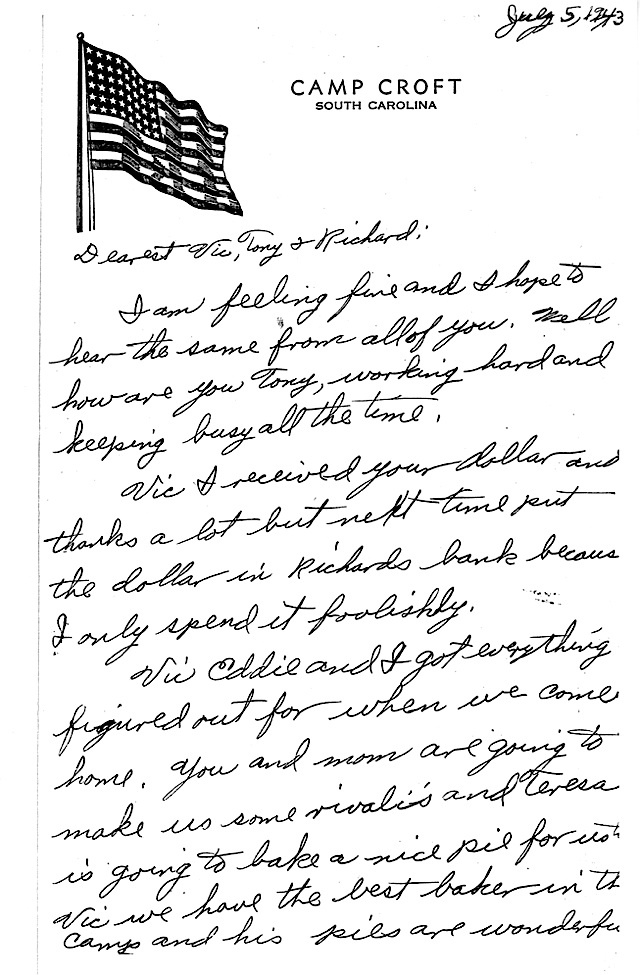 July 5, 1943
CAMP CROFT
SOUTH CAROLINA
Dearest Vic, Tony & Richard:
I am feeling fine and I hope to
hear the same from all of you. Well
how are you Tony, working hard and
keeping busy all the time.
Vic I received your dollar and
thanks a lot but next time put
the dollar in Richards bank becaus
I only spend it foolishly.
Vic Eddie and I got everything
figured out for when we come
home. You and mom are going to
make us some rivali's and Teresa
is going to bake a nice pie for us
Vic we have the best baker in th
camp and his pies are wonderfu